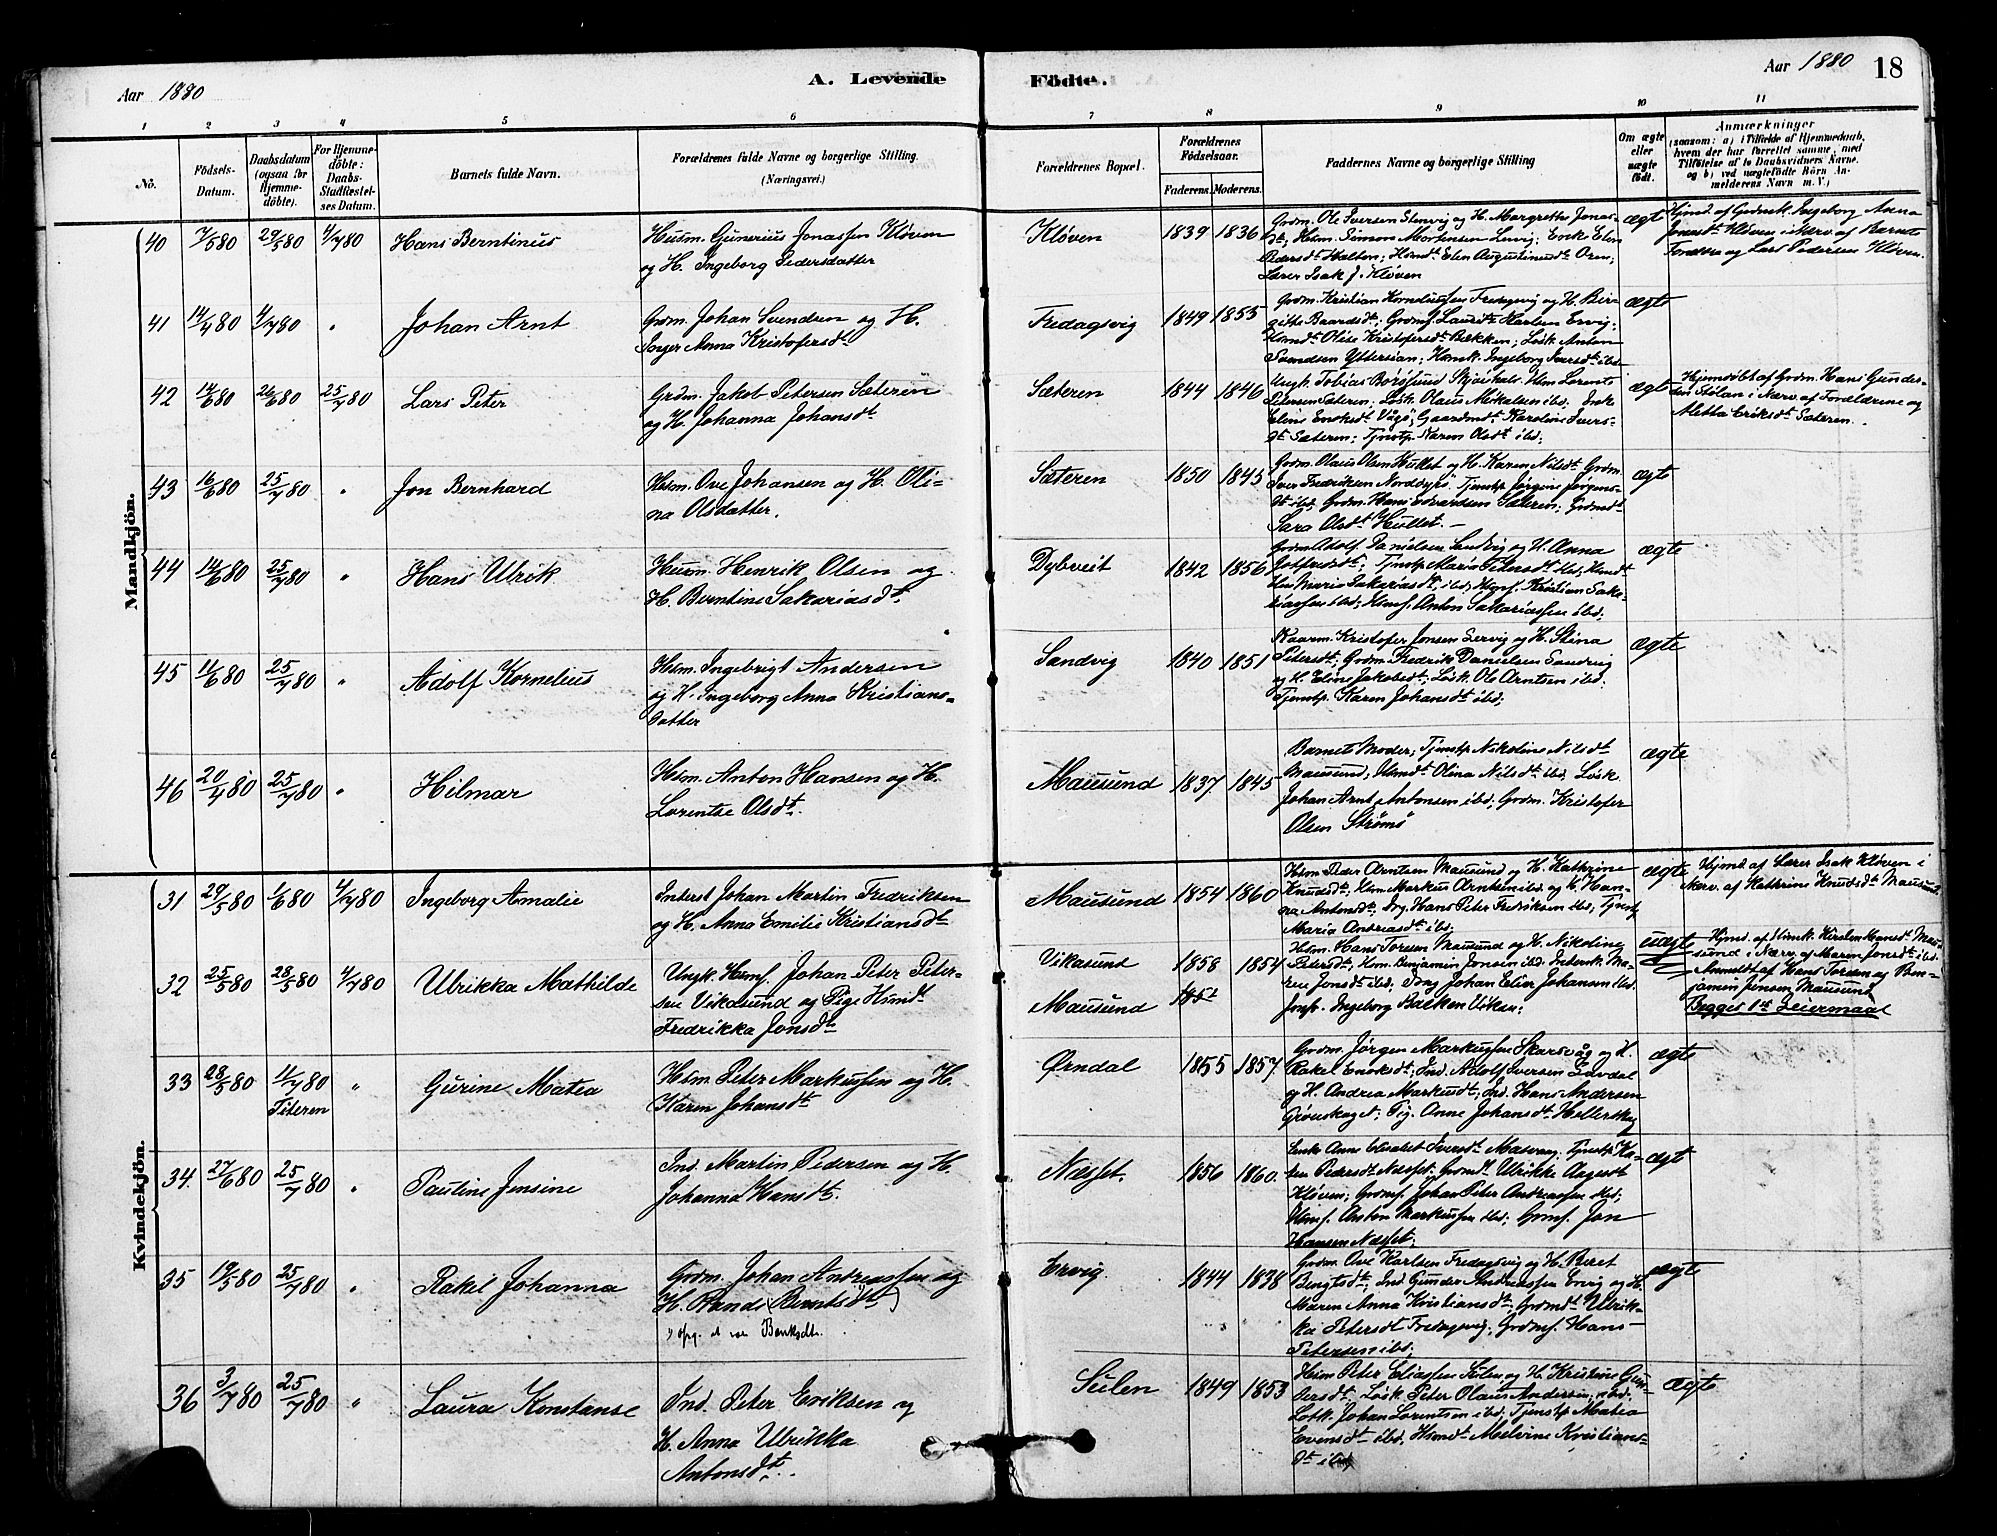 Aar 1880
A. Levende
Födte.
Aar 1880
18
1 2 3 4 5 6 7 8 9 10 11
No.
Födsels-
Datum.
Daabsdatum
(ogsaa for
Hjemme-
döbte).
For Hjemme-
döbte:
Daabs-
Stadfæstel-
ses Datum.
Barnets fulde Navn.
Forældrenes fulde Navne og borgerlige Stilling.
(Næringsvei.)
Forældrenes Bopæl.
Forældrenes
Födselsaar.
Faderens. Moderens.
Faddernes Navne og borgerlige Stilling
Om ægte
eller
uægte
födt.
Anmærkninger
(saasom: a) i Tilfælde af Hjemmedaab,
hvem der har forrettet samme, med
Tilföielse af to Daabsvidners Navne.
og b) ved uægtefödte Börn An-
melderens Navn m. V.)
Mandkjön.
40 7/5 80 29/5 80 4/7 80 Hans Berntinus
Husm. Gunerius Jonassen Kløven
og H. Ingeborg Pedersdatter
Kløven 1839 1836
Grdm. Ole Iversen Stenvig og H. Margrethe Jonas-
dt; Husm. Simon Mortensen Lervig; Enke Elen
Pedersdt Halten; Husmdt Elen Augustinusdt Oren;
Lærer Isak J. Kløven
ægte
Hjmd. af Grdmk. Ingeborg Anna
Jonasdt Kløven i Nærv. af Barnets
Forældre og Lars Pedersen Kløven.
41 14/4 80 4/7 80 " Johan Arnt
Grdm. Johan Svendsen og H.
Inger Anna Kristofersdt
Fredagsvig 1849 1855
Grdm. Kristian Korneliussen Fredagsvig og H. Bir-
gitte Baardsdt; Grdmf. Laurits Karlsen Ervig;
Husmdt Olise Kristofersdt Bækken; Løsk. Anton
Svendsen Yttersian; Husmk. Ingeborg Iversdt ibd.
ægte
42 14/6 80 26/6 80 25/7 80 Lars Peter
Grdm. Jakob Petersen Sæteren
og H. Johanna Johansdt
Sæteren 1844 1846
Ungk. Tobias Borøsund Skjærhals. Hsm. Lorents
Petersen Sæteren; Løsk. Olaus Mikelsen ibd. Enke
Eline Enoksdt Vågø; Gaardmdt Karoline Ivers-
dt Sæteren; Tjnstp. Karen Olsdt ibd;
ægte
Hjemdøbt af Grdm. Hans Gunder-
sen Stølan i Nærv. af Forældrene og
Metta Eriksdt Sæteren.
43 16/6 80 25/7 80 " Jon Bernhard
Husm. Ove Johansen og H. Oli-
na Olsdatter.
Sæteren 1850 1845
Grdm. Olaus Olsen Hullet og H. Karen Nilsdt Grdm.
Iver Fredriksen Norddyrø. Tjenstp. Jørgine Jørgens-
dt ibd. Grdm. Hans Edvardsen Sæteren; Grdmdt
Sara Olsdt Hullet. –
ægte
44 14/6 80 25/7 80 " Hans Ulrik
Husm. Henrik Olsen og
H. Berntine Sakariasdt
Dybveit 1842 1856
Grdm. Adolf Danielsen Sandvig og H. Anna
Gotfredsdt; Tjnstp. Maria Petersdt ibd; Husmdt
Elen Maria Sakariasdt ibd; Husmf. Kristian Saka-
riassen ibd; Husmf. Anton Sakariassen ibd;
ægte
45 11/6 80 25/7 80 " Adolf Kornelius
Husm. Ingebrigt Andersen
og H. Ingeborg Anna Kristians-
datter
Sandvig 1840 1851
Kaarm. Kristofer Jonsen Lervig og H. Stina
Petersdt; Grdm. Fredrik Danielsen Sandvig
og H. Eline Jakobsdt; Løsk. Ole Arntsen ibd.
Tjenstp. Karen Johansdt ibd;
ægte
46 20/4 80 25/7 80 " Hilmar
Husm. Anton Hansen og H.
Lorentse Olsdt.
Mausund 1837 1845
Barnets Moder; Tjnstp. Nikoline Nilsdt
Mausund; Husmdt Olina Nilsdt ibd. Løsk.
Johan Arnt Antonsen ibd; Grdm. Kristofer
Olsen Strømø
ægte
Kvindekjön.
31 29/5 80 1/6 80 4/7 80 Ingeborg Amalie
Inderst Johan Martin Fredriksen
og H. Anna Emilie Kristiansdt
Mausund 1854 1860
Husm Peder Arntsen Mausund og H. Kathrine
Knudsdt; Hsm Markus Arntsen ibd. og H. Han-
na Antonsdt; Drg. Hans Peter Fredriksen ibd; Tjnstp
Maria Andreasdt ibd;
ægte
Hjmd. af Lærer Isak Kløven i
Nærv. af Kathrine Knudsdt Mausund
32 25/5 80 28/5 80 4/7 80 Ulrikka Mathilde
Ungk. Husmf. Johan Peter Peter-
sen Vikasund og Pige Husmdt
Fredrikka Jonsdt
Vikasund
Mausund
1858 1854
Husm. Hans Torsen Mausund og H. Nikoline
Petersdt, Hsm. Benjamin Jonsen ibd. Indensk. Ma-
ren Jonsdt ibd; Dreng Johan Elier Johansen ibd.
Jomfr. Ingeborg Balken Viken;
uægte
Hjmd. af Husmk. Kirsten Hansdt Mau-
sund i Nærv. af Maren Jonsdt ibd.
Anmeldt af Hans Torsen og Ben-
jamin Jonsen Mausund
Begges 1ste Leiermaal
33 28/5 80 11/7 80 Titeren " Gurine Matea
Husm. Peter Markussen og H.
Karen Johansdt
Ørndal 1855 1857
Grdm. Jørgen Markussen Skarsvåg og H.
Rakel Enoksdt; Ind. Adolf Iversen Lavdal
og H. Andrea Markusdt; Ind. Hans Andersen
Grønskaget; Pig. Anne Johansdt Hellerskog
ægte
34. 27/6 80 25/7 80 " Pauline Jensine
Ind. Martin Pedersen og H.
Johanna Hansdt.
Næsset. 1856 1860.
Enke Anne Elisabet Iversdt Masvær; Tjnstp. Ka-
ren Pedersdt Næsset; Grdmdt Ulrikke August
Kløven; Grdmf. Johan Peter Andreassen ibd;
Husmf. Anton Markussen ibd; Grmf. Jon
Hansen Næsset;
ægt
35 19/5 80 25/7 80 " Rakel Johanna
Grdm. Johan Andreassen og
H. Randi (Berntsdt)
) opg. at være Bentsdtr.
Ervig 1844 1838
Grdm. Ove Karlsen Fredagsvig og H. Beret
Bengtsdt; Ind Gunder Andreassen Ervig og H.
Maren Anna Kristiansdt; Grdmdt Ulrik-
ka Petersdt Fredagsvig; Grdmf. Hans
Petersen ibd;
ægte
36 3/7 80 25/7 80 " Laura Konstanse
Ind. Peter Eriksen og
H. Anna Ulrikka
Antonsdt.
Sulen 1849 1853
Husm Peter Eliassen Sulen og H. Kristine Gun-
dersdt. Løsk. Peter Olaus Andersen ibd.
Løsk. Johan Lorentsen ibd; Tjenstp Matea
Evensdt ibd. Husmdt Melvine Kristians-
dt ibd
ægte